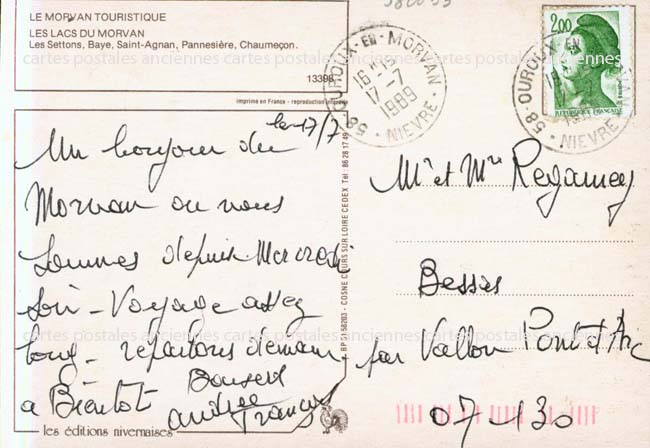 LE MORVAN TOURISTIQUE
LES LACS DU MORVAN
Les Settons, Baye, Saint-Agnan, Pannesière, Chaumeçon.
13398
imprimé en France - reproduction
le 17/7
Un bonjour du
Morvan ou nous
sommes depuis Mercredi
soir - Voyage assez
long - repartons demain
a Bientot Bonsers
Andrée Francis
les éditions nivernaises
COSNE COURS SUR LOIRE CEDEX Tél : 86 28 17 49
58 - OUROUX - EN - MORVAN - NIEVRE
16 H
17 - 7
1989
2,00
REPUBLIQUE FRANÇAISE
58 - OUROUX - EN
NIEVRE
Mr et Mme Regamey
Besses
par Vallon Pont d'Arc
07-130
cartes postales anciennes cartes postales anciennes cartes postales anciennes